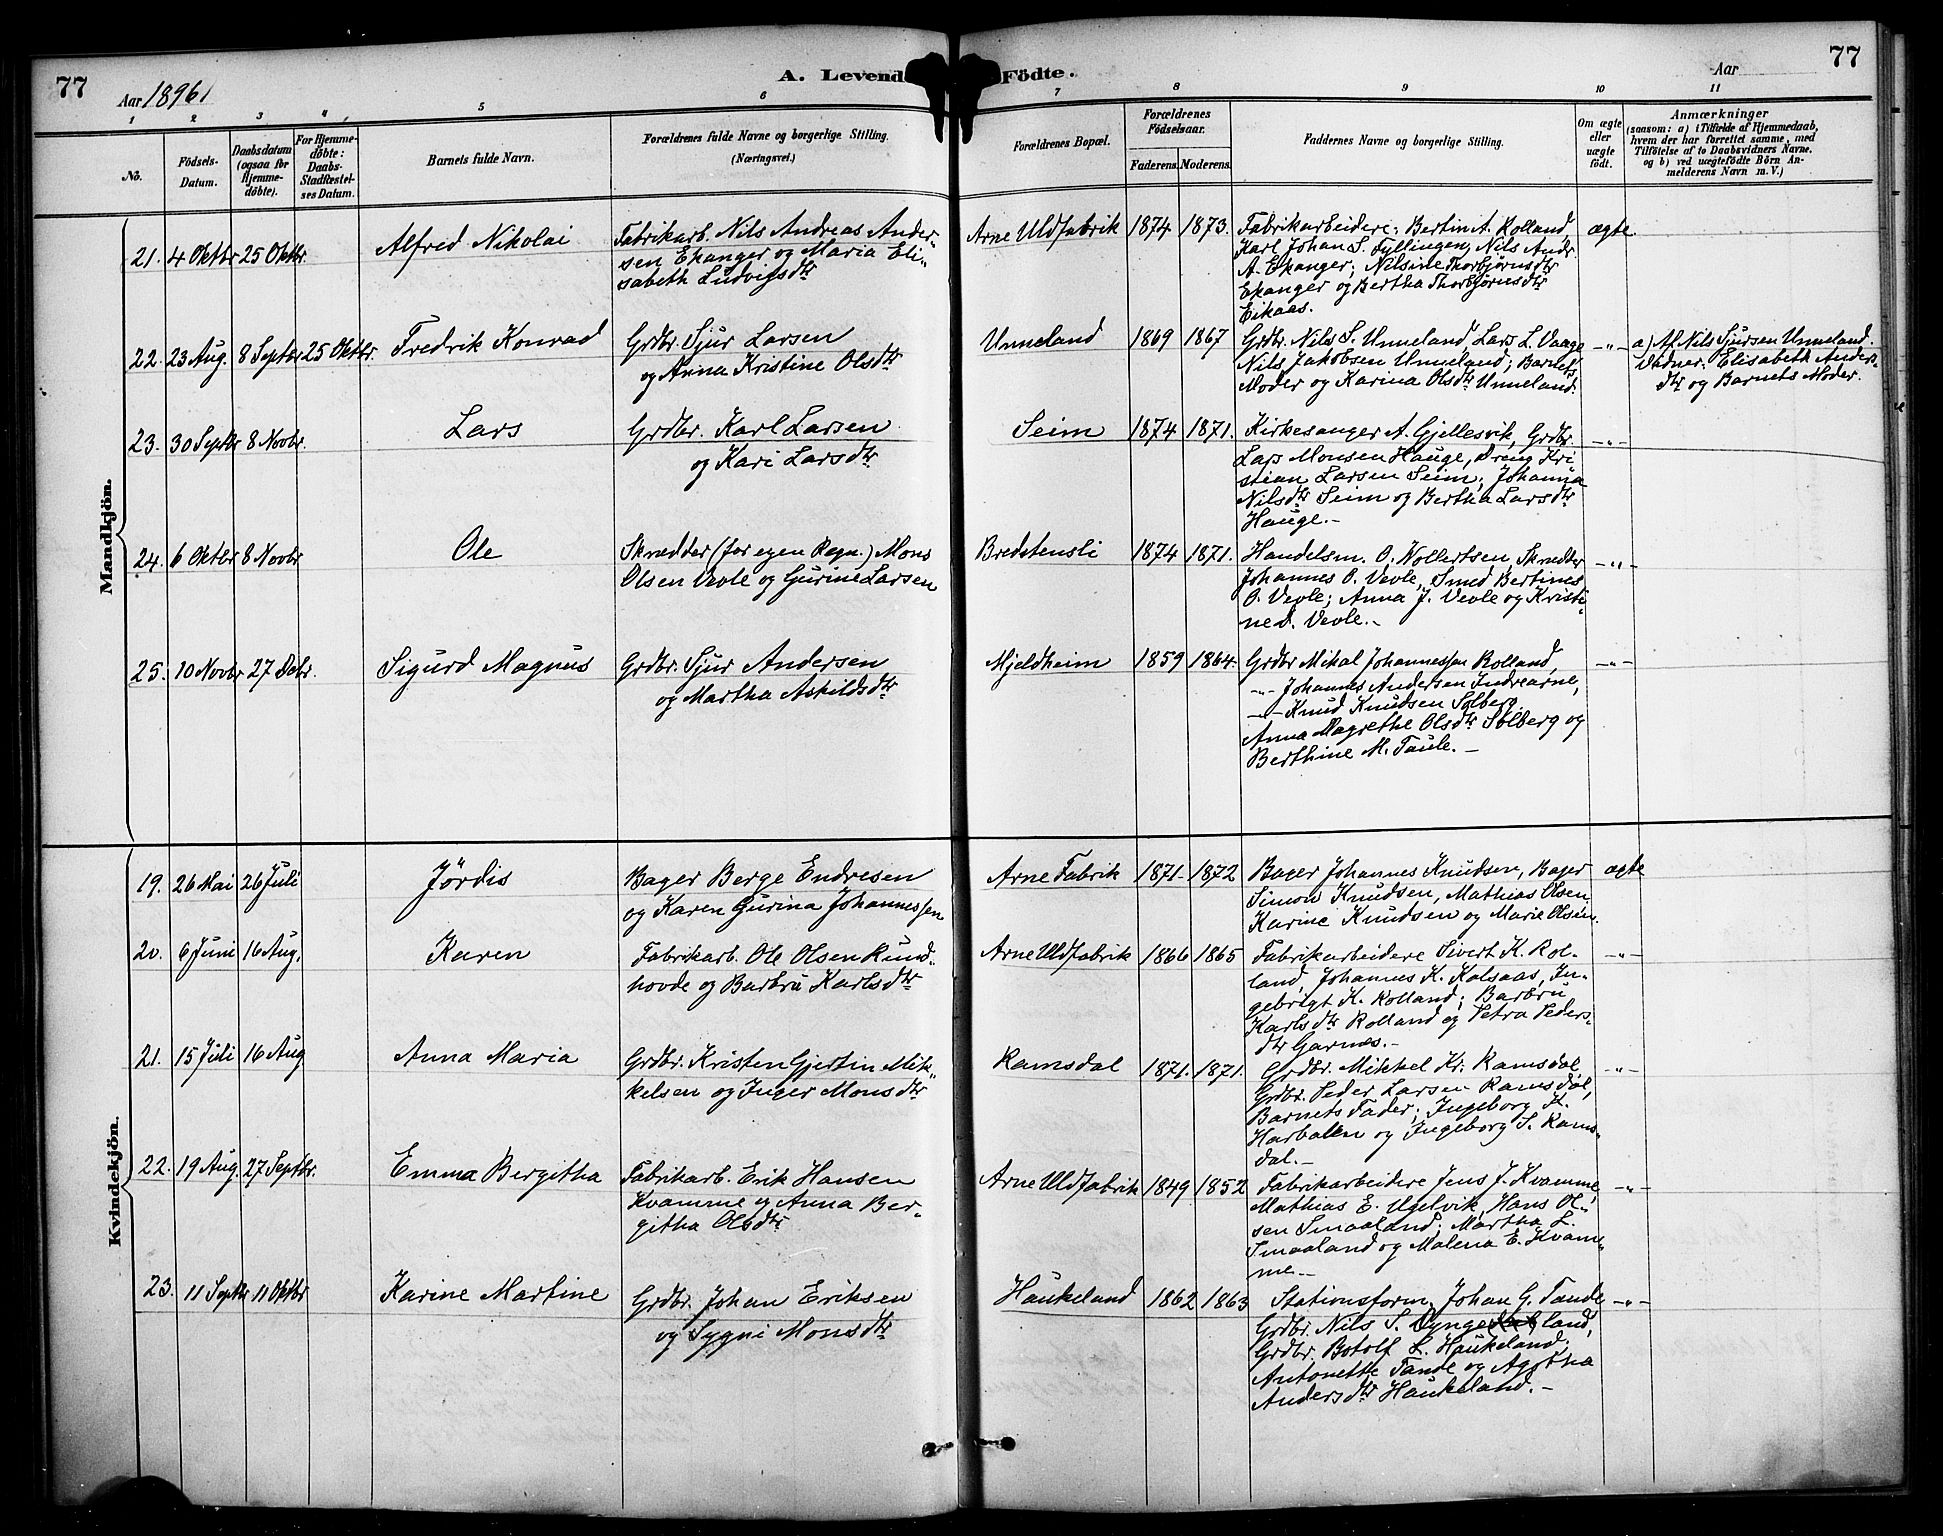 77
Aar 1896.
A. Levende Födte.
Aar
77
1 2 3 4 5 6 7 8 9 10 11
No.
Födsels-
Datum.
Daabsdatum
(ogsaa for
Hjemme-
döbte).
For Hjemme-
döbte:
Daabs-
Stadfæstel-
ses Datum.
Barnets fulde Navn.
Forældrenes fulde Navne og borgerlige Stilling.
(Næringsvei.)
Forældrenes Bopæl.
Forældrenes
Födselsaar.
Faderens. Moderens.
Faddernes Navne og borgerlige Stilling.
Om ægte
eller
uægte
födt.
Anmærkninger
(sansom: a) i Tilfælde af Hjemmedaab,
hvem der har forrettet samme, med
Tilföielse af to Daabsvidners Navne,
og b) ved uægtefödte Börn An-
melderens Navn m. V.)
Mandkjön.
21. 4 Oktbr 25 Oktbr. Alfred Nikolai
Fabrikarb. Nils Andreas Ander-
sen Ekanger og Maria Eli-
sabeth Ludvigsdtr
Arne Uldfabrik 1874 1873.
Fabrikarbeidere: Bertin A. Rolland,
Karl Johan S. Fyllingen, Nils Andr.
A. Ekanger; Nilsine Thorbjörnsdtr
Ekanger og Bertha Thorbjörnsdtr
Eikaas.
ægte
22. 23 Aug. 8 Septbr 25 Oktbr. Fredrik Konrad
Grdbr. Sjur Larsen
og Anna Kristine Olsdtr
Unneland 1869 1867
Grdbr. Nils S. Unneland, Lars L. Vaage
Nils Jakobsen Unneland; Barnets
Moder og Karina Olsdtr Unneland.
-"-
a) Af Nils Sjursen Unneland.
Vidner: Elisabeth Anders-
dtr og Barnets Moder.
23. 30 Septbr 8 Novbr. Lars
Grdbr. Karl Larsen
og Kari Larsdtr
Seim 1874 1871.
Kirkesanger A. Gjellesvik, Grdbr.
Lars Monsen Hauge, Dreng Kri-
stian Larsen Seim; Johanna
Nilsdtr Seim og Bertha Larsdtr
Hauge.-
-"-
24. 6 Oktbr 8 Novbr Ole
Skrædder (for egen Regn.) Mons
Olsen Vevle og Gurine Larsen
Bredstensli 1874 1871.
Handelsm. O. Nollertsen, Skrædder
Johannes O. Vevle, Smed Bertines
O. Vevle; Anna J. Vevle og Kristi-
ne d. Vevle.-
-"-
25. 10 Novbr 27 Debr. Sigurd Magnus
Grdbr. Sjur Andersen
og Martha Askildsdtr
Mjeldheim 1859 1864.
Grdbr Mikal Johannessen Rolland,
-"- Johannes Andersen Indrearne,
-"- Knud Knudsen Solberg.
Anna Magrethe Olsdtr Solberg og
Berthine M. Taule.-
-"-
Kvindekjön.
19. 26 Mai 26 Juli Jördis
Bager Berge Endresen
og Karen Gurina Johannessen
Arne Fabrik 1871. 1872
Bager Johannes Knudsen, Bager
Simon Knudsen, Mathias Olsen,
Karine Knudsen og Marie Olsen.
ægte
20. 6 Juni 16 Aug. Karen
Fabrikarb. Ole Olsen Rund-
hovde og Barbru Karlsdtr
Arne Uldfabrik 1866 1865
Fabrikarbeidere Sivert K. Rol-
land, Johannes K. Kalsaas, In-
gebrigt K. Rolland; Barbru
Karlsdtr Rolland og Petra Peders-
dtr Garnes.-
-"-
21. 15 Juli 16 Aug Anna Maria
Grdbr. Kristen Gjertin Mik-
kelsen og Inger Monsdtr
Ramsdal 1871. 1871.
Grdbr. Mikkel Kr. Ramsdal,
Grdbr. Peder Larsen Ramsdal,
Barnets Fader; Ingeborg K.
Harbakken og Ingeborg S. Rams-
dal.-
-"-
22. 19 Aug. 27 Septbr. Emma Bergitha
Fabrikarb. Erik Hansen
Kvamme og Anna Ber-
githa Olsdtr
Arne Uldfabrik 1849 1852
Fabrikarbeidere Jens J. Kvamme,
Mathias E. Ugelvik, Hans Ol-
sen Smaaland; Martha L.
Smaaland og Malena E. Kvam-
me.-
-"-
23. 11 Septbr 11 Oktbr Karine Martine
Grdbr. Johan Eriksen
og Sygni Monsdtr
Haukeland 1862 1863
Stationsform. Johan G. Tande
Grdbr. Nils S. Dyngeland,
Grdbr. Botolf L. Haukeland;
Antonette Tande og Agotha
Andersdtr Haukeland.-
-"-